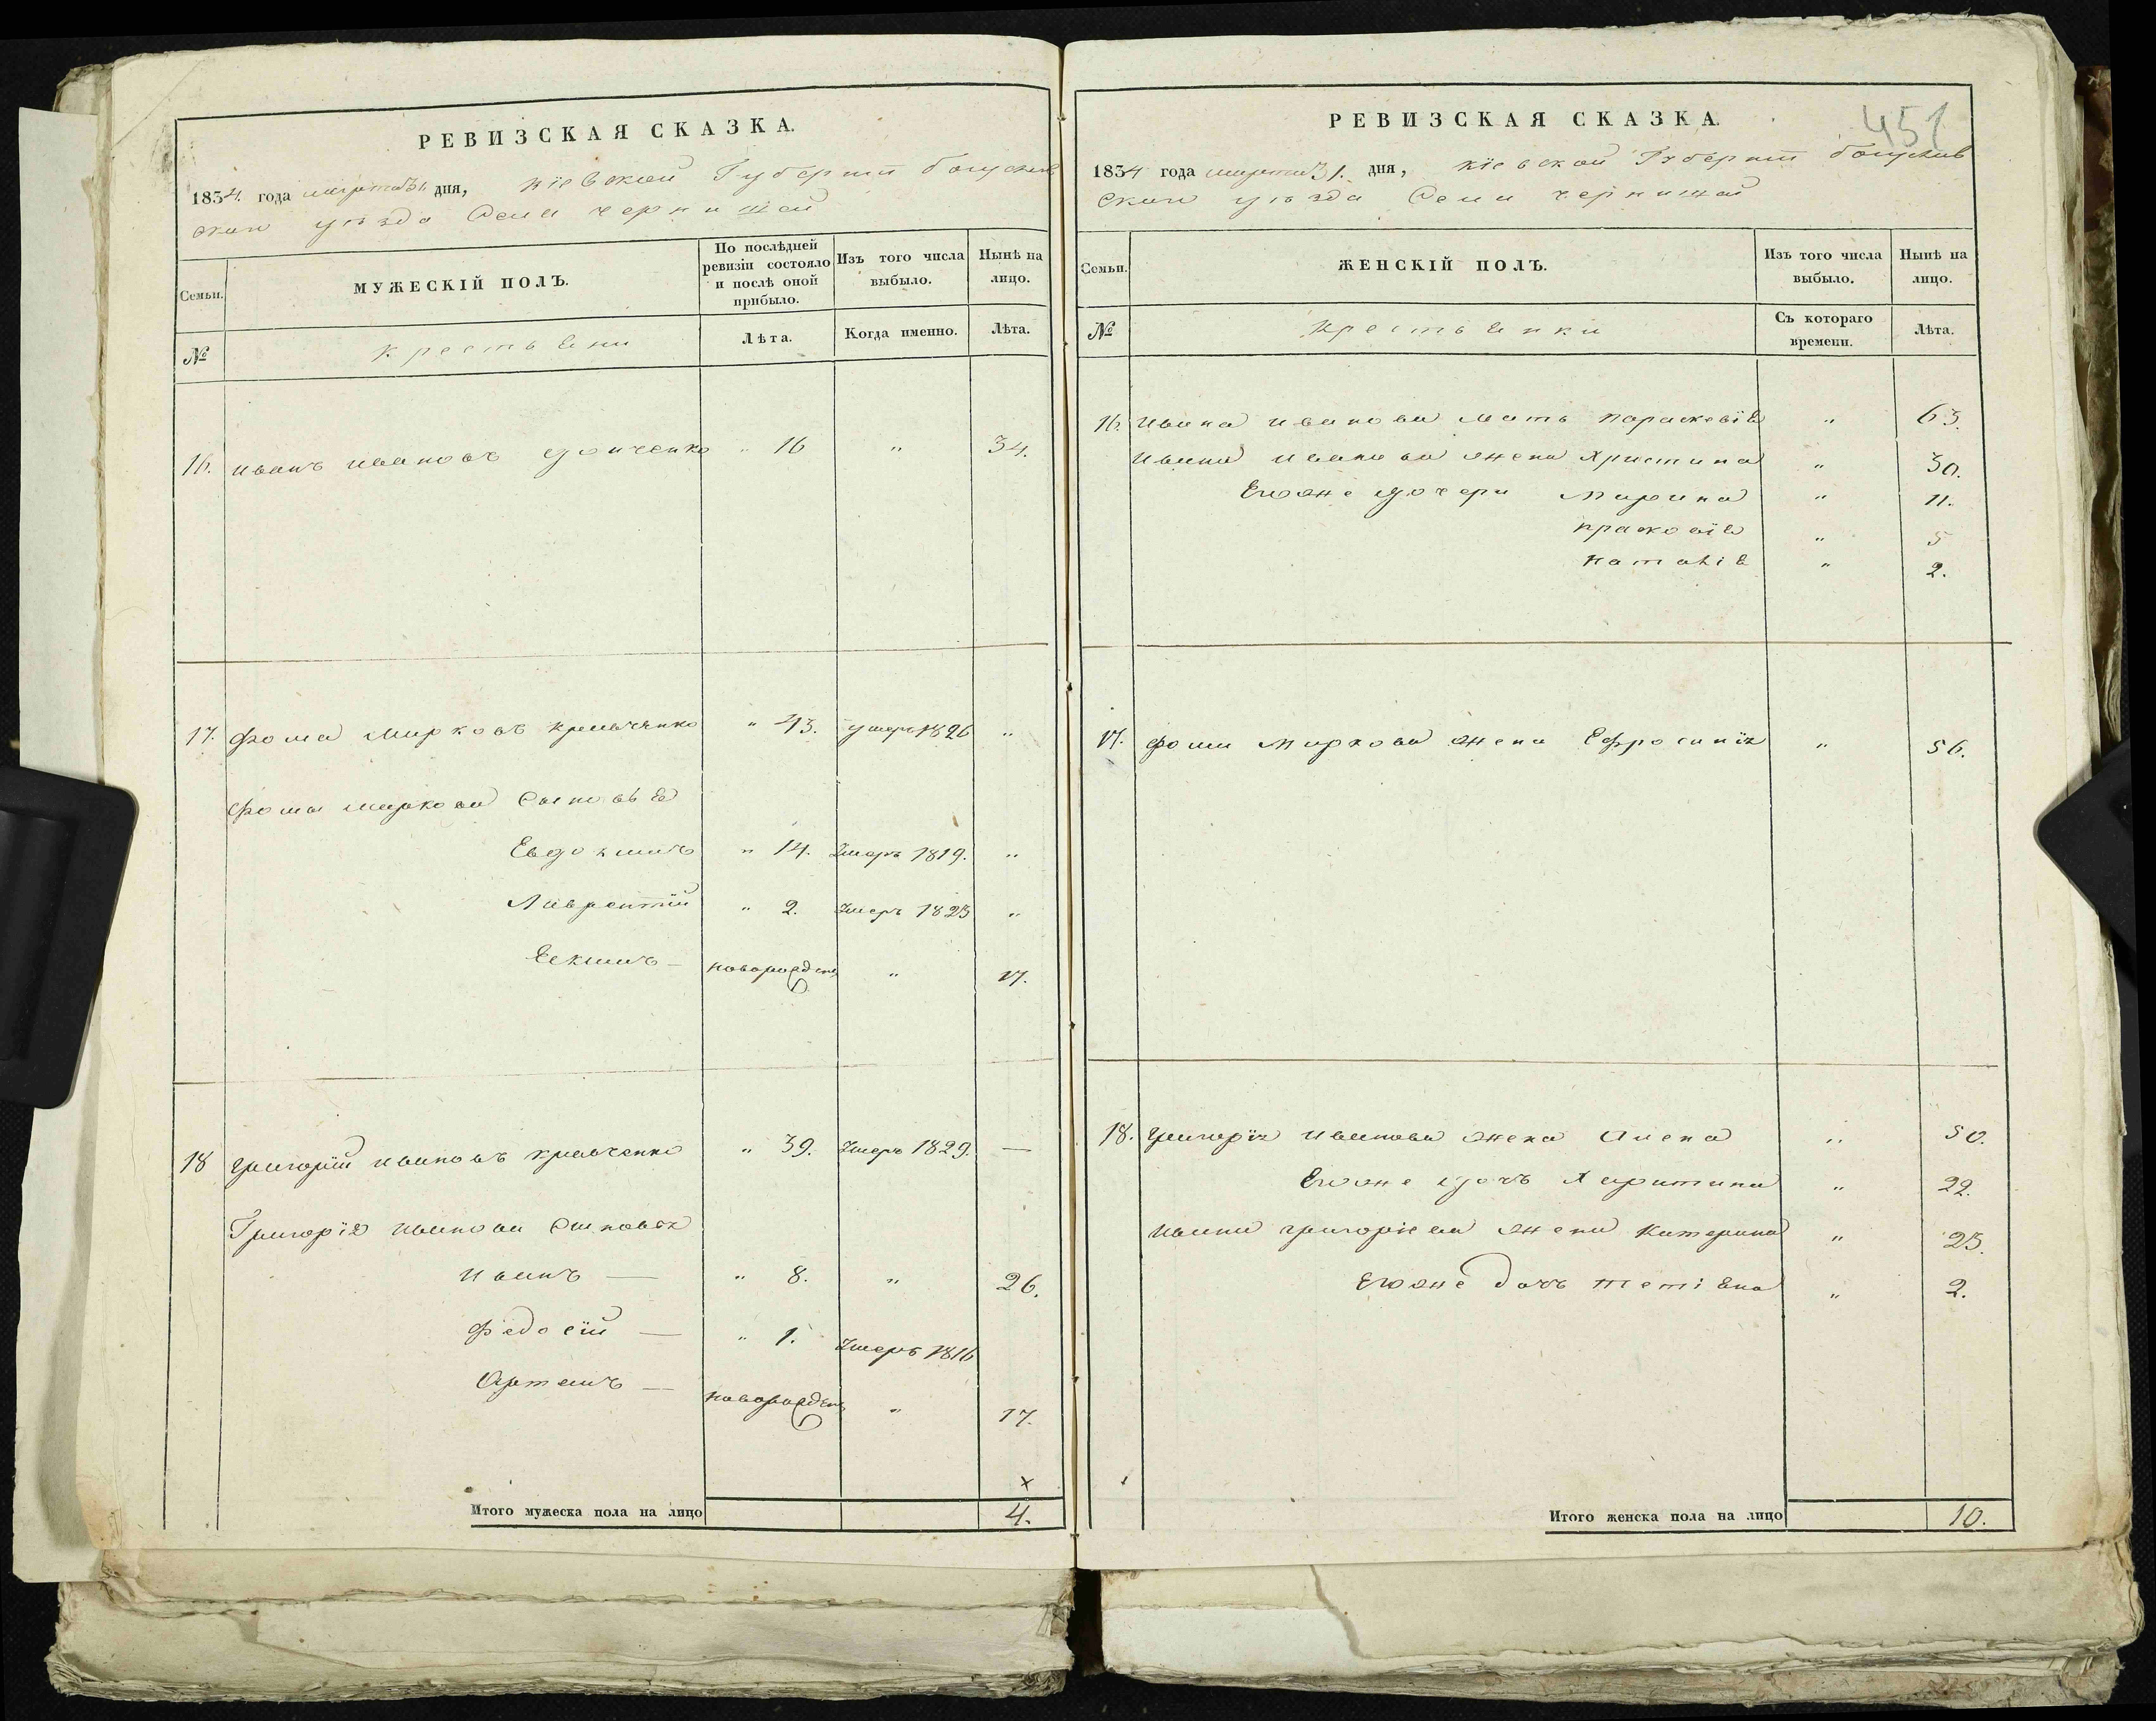 РЕВИЗСКАЯ СКАЗКА.
1834. года марта 31. дня, Кіевской Губерніи богуслав
скаго уѣзда Села
Семьи.
МУЖЕСКІЙ ПОЛЪ.
По послѣдней ревизіи состояло и послѣ оной прибыло.
Изъ того числа выбыло.
Нынѣ на лицо.
№
крестьяни
Лѣта.
Когда именно.
Лѣта.
16. иванъ ивановъ " 16 " 34.
17. фома марковъ кравченко " 43. умеръ 1826 "
фомы маркова Сыновья
Евдокимъ " 14. Умеръ 1819. "
Лаврентій " 2. Умеръ 1825 "
новорожден " 17.
18 григорій ивановъ кравченко " 39. Умеръ 1829. —
Григорія иванова Сыновья
иванъ — " 8. " 26.
федосій — " 1. Умеръ 1816
Артемъ — новорожденъ " 17.
×
Итого мужеска пола на лицо 4.
РЕВИЗСКАЯ СКАЗКА.
451
1834 года марта 31. дня, Кіевской Губерніи богуслав
скаго уѣзда Села
Семьи.
ЖЕНСКІЙ ПОЛЪ.
Изъ того числа выбыло.
Нынѣ на лицо.
№
крестьянки
Съ котораго времени.
Лѣта.
16. ивана иванова мать параскевія " 63.
ивана иванова жена христина " 30.
Егоже дочери Марина " 11.
прасковія " 5
наталія " 2.
17. фомы маркова жена Ефросинія " 56.
18. григорія иванова жена Анна " 50.
Егоже дочь Харитина " 22.
ивана григорьева жена Катерина " 25.
Егоже дочь Тетіяна " 2.
Итого женска пола на лицо 10.